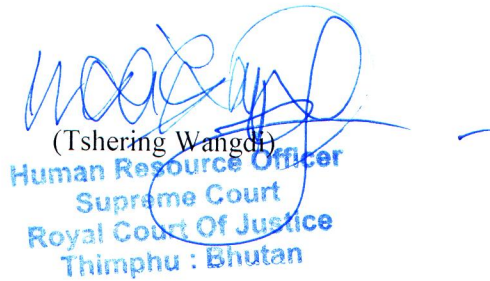 (Tshering Wangdi)
Human Resource Officer
Supreme Court
Royal Court Of Justice
Thimphu : Bhutan